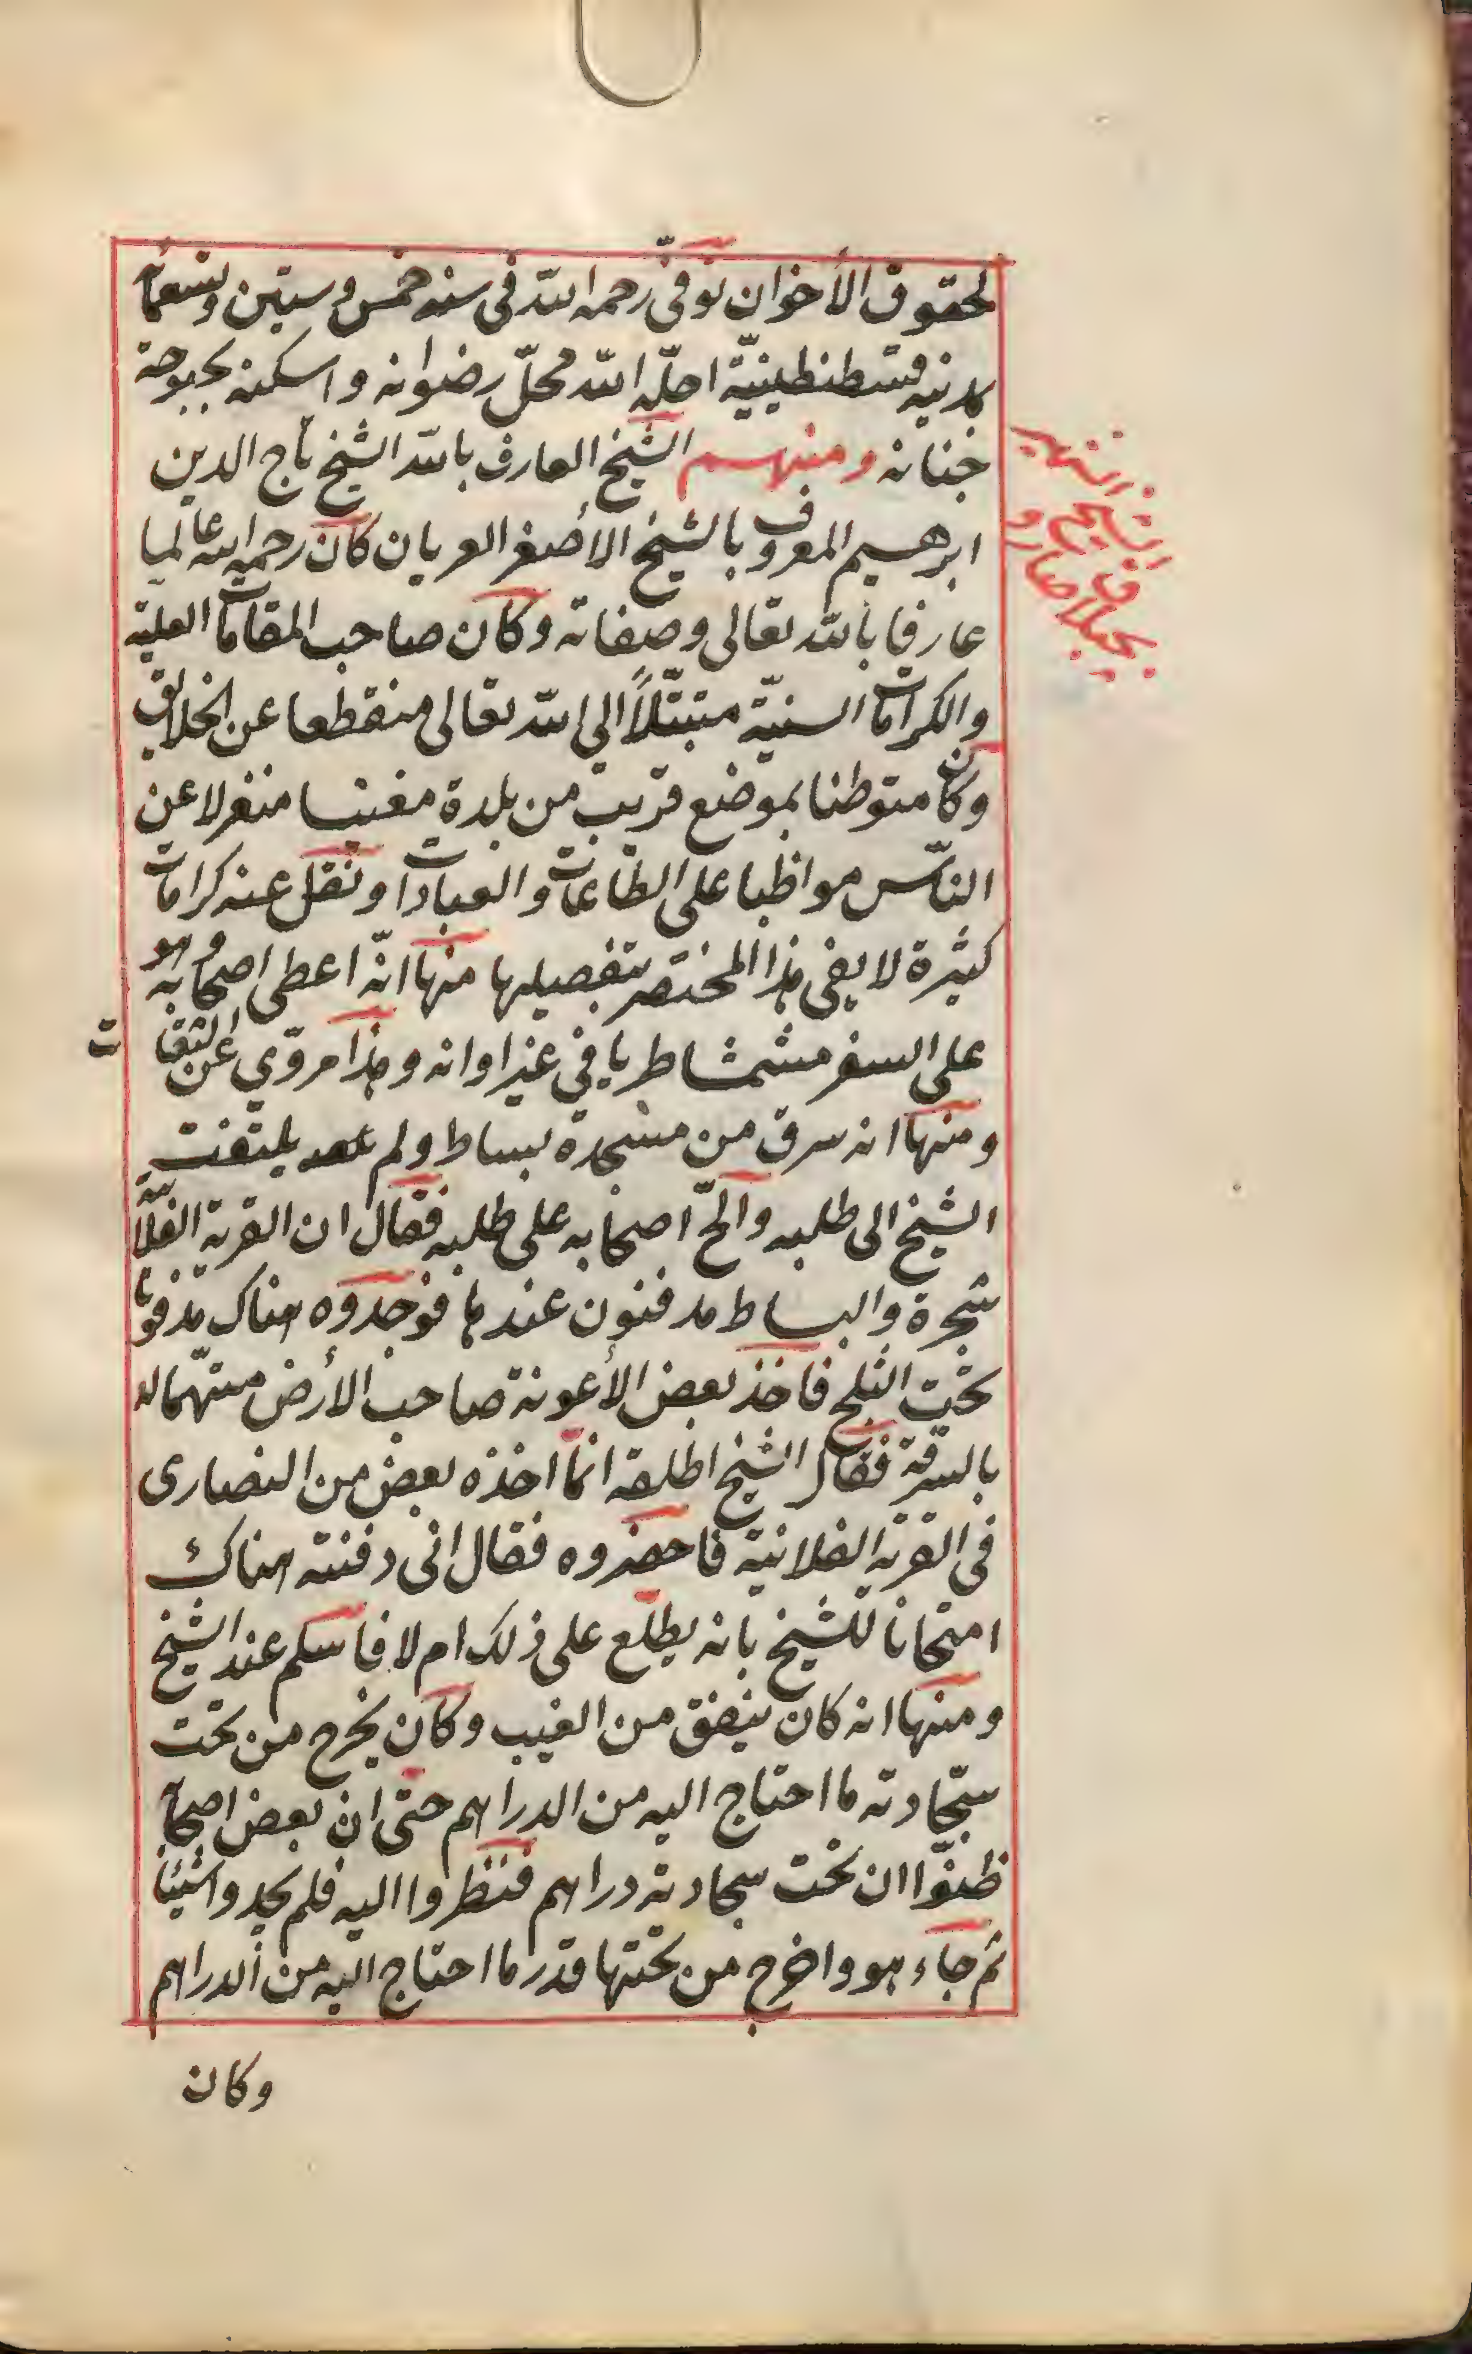 لحقوق الأخوان توفّي رحمه الله في سنه خمس وستين وتسعمائة
بمدنيه قسطنطينيّة احلّه الله محلّ رضوانه واسكنه بحبوحة
جنانه ومنهم الشيخ العارف بالله الشيخ تاج الدين
ابرهيم المعروف بالشيخ الأصغر العريان كان رحمه الله عالما
عارفا بالله تعالى وصفاته وكان صاحب المقامات العليّة
والكرامات السنيّة متبتّلاً الى الله تعالى منقطعا عن الخلايق
وكان متوطنا بموضع قريب من بلدة مغنيسا منغرلا عن
النّاس مواظبا على الطاعات والعبادات ونقل عنه كرامات
كثيرة لا يفي هذا المختصر بتفصيلها منها انّه اعطى اصحابه وهو
على السفر مشمشا طريا في غير اوانه وهذا مروّي عن الثقات
ومنها انه سرق من مسجده بساط ولم يلتفت
الشيخ الى طلبه والحّ اصحابه على طلبه فقال ان القرية الفلانيّة
شجرة والبساط مدفنون عندها فوجدوه هناك مدفونا
تحت الثلج فاخذ بعض الأعونة صاحب الأرض متّهما له
بالسرقة فقال الشيخ اطلقه انما اخذه بعض من النصارى
في القرية الفلانية فاحضروه فقال اني دفنته هناك
امتحانا للشيخ بانه يطلع على ذلك ام لا فاسلم عند الشيخ
ومنها انه كان ينفق من الغيب وكان يخرج من تحت
سجّادته ما احتاج اليه من الدراهم حتى ان بعض اصحابه
ظنوّا ان تحت سجادته دراهم فنظروا اليه فلم يجدوا شيئا
ثم جاء هو واخرج من تحتها قدر ما احتاج اليه من الدراهم
وكان